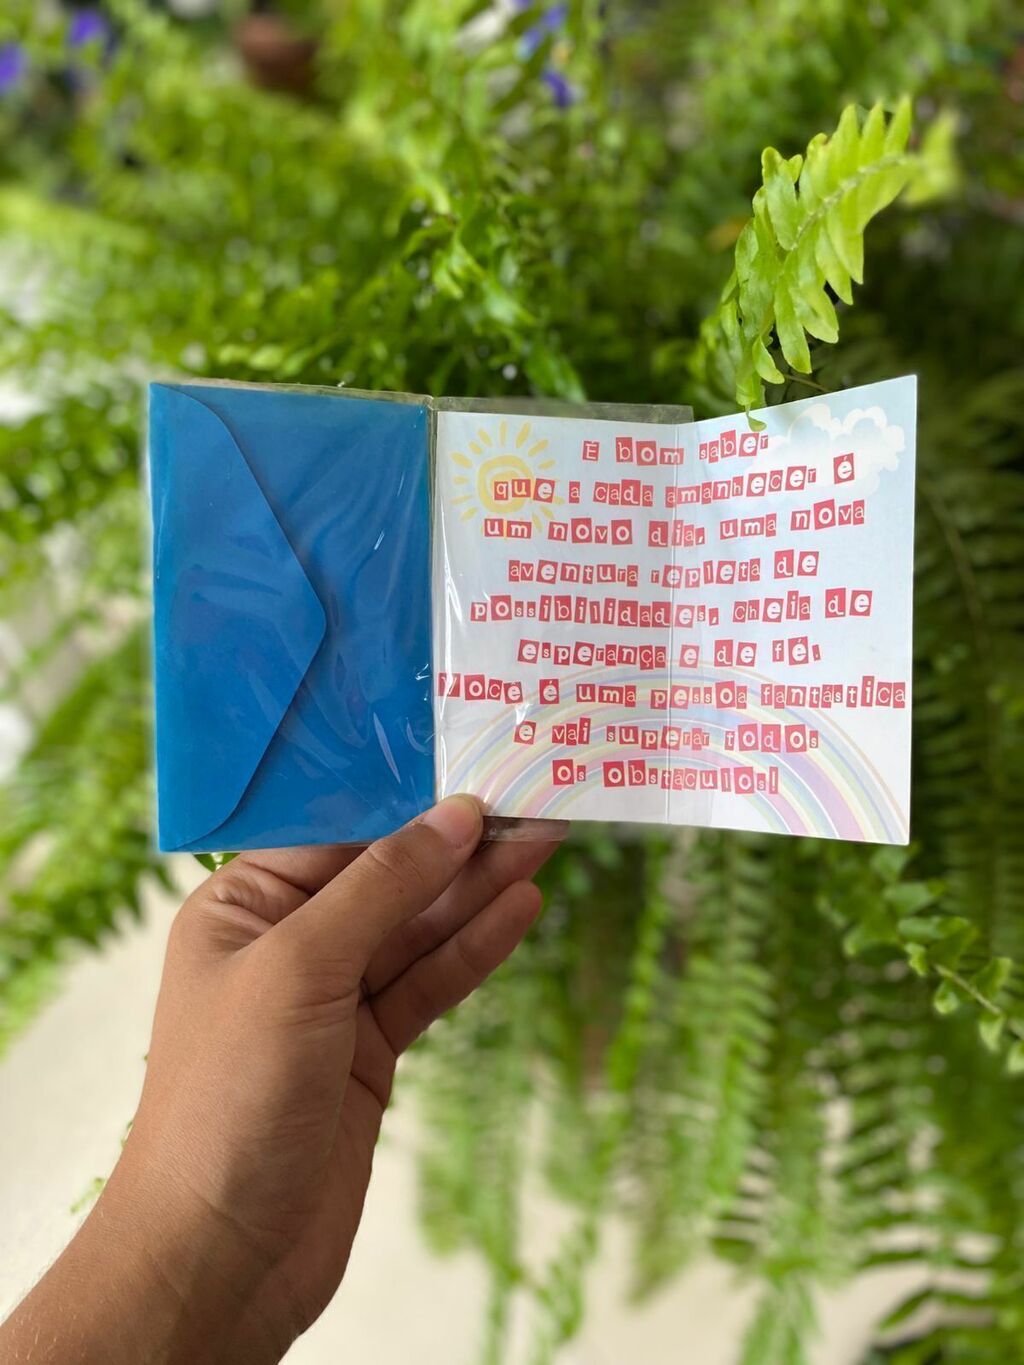 É bom saber
que a cada amanhecer é
um novo dia, uma nova
aventura repleta de
possibilidades, cheia de
esperança e de fé.
Você é uma pessoa fantástica
e vai superar todos
os obstáculos!